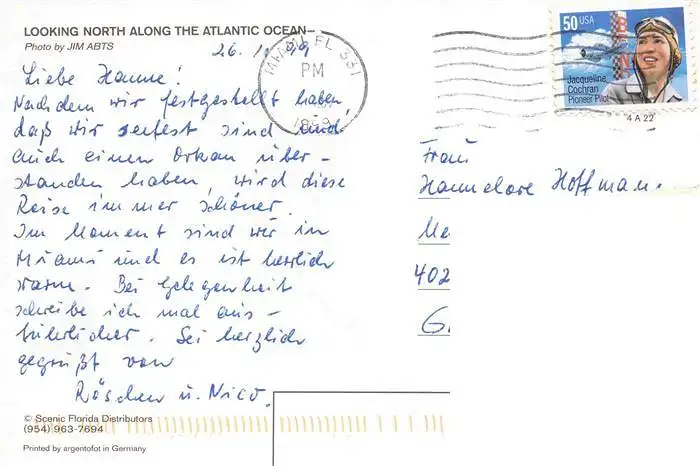 LOOKING NORTH ALONG THE ATLANTIC OCEAN
Photo by JIM ABTS
Liebe Hanne!
Nachdem wir festgestellt haben,
daß wir seefest sind und
auch einen Orkan über-
standen haben, wird diese
Reise immer schöner.
Im Moment sind wir in
Miami und es ist herrlich
warm. Bei Gelegenheit
schreibe ich mal aus-
führlicher. Sei herzlich
gegrüßt von
Röschen u. Nico.
© Scenic Florida Distributors
(954) 963-7694
Printed by argentofot in Germany
MIAMI FL 331
PM
50 USA
Jacqueline
Cochran
Pioneer Pilot
4 A 22
Frau
Hannelore Hoffman
402
G